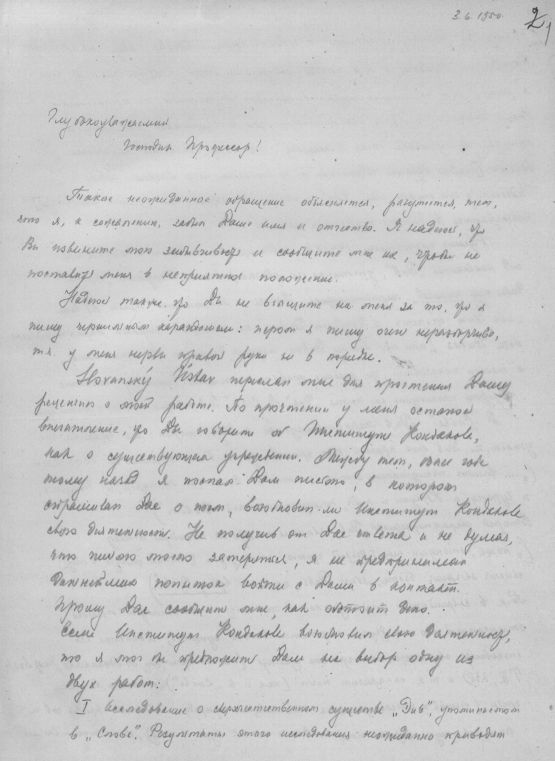 3.6.1950.
2
Глубокоуважаемый
Господин Профессор!
Такое неожиданное обращение объясняется, разумеется, тем,
что я, к сожалению, забыл Ваше имя и отчество. Я надеюсь, что
Вы извините мою забывчивость и сообщите мне их, чтобы не
поставить меня в неприятное положение.
Надеюсь также, что Вы не взыщите на меня за то, что я
пишу чернильным карандашом: пером я пишу очень неразборчиво,
т.к. у меня нервы правой руки не в порядке.
Slovanský Ústav переслал мне для прочтения Вашу
рецензию о моей работе. По прочтении у меня осталось
впечатление, что Вы говорите об Институте Кондакова,
как о существующем учреждении. Между тем, более года
тому назад я послал Вам письмо, в котором
спрашивал Вас о том, возобновил ли Институт Кондакова
свою деятельность. Не получив от Вас ответа и не думая,
что письмо могло затеряться, я не предпринимал
дальнейших попыток войти с Вами в контакт.
Прошу Вас сообщить мне, как обстоит дело.
Если Институт Кондакова возобновил свою деятельность,
то я мог бы предложить Вам на выбор одну из
двух работ:
I Исследование о сверхъестественном существе „Див", упомянутом
в „Слове". Результаты этого исследования неожиданно приводят